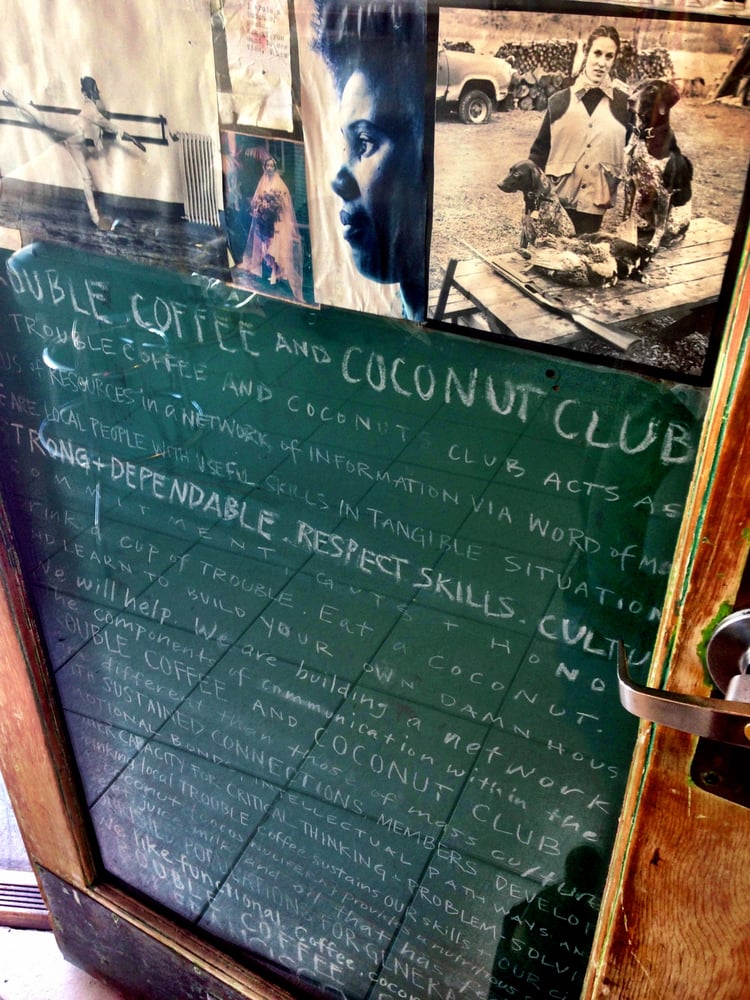 OUBLE COFFEE AND COCONUT CLUB
TROUBLE COFFEE AND COCONUT CLUB ACTS AS
OF RESOURCES IN A NETWORK OF INFORMATION VIA WORD OF MO
ARE LOCAL PEOPLE WITH USEFUL SKILLS IN TANGIBLE SITUATION
TRONG + DEPENDABLE. RESPECT SKILLS. CULTU
OMMITMENT, GUTS + HONO
rink a cup of TROUBLE. Eat a COCONUT.
ND LEARN TO BUILD YOUR OWN DAMN HOUS
we will help. We are building a network
The components of communication within the
OUBLE COFFEE AND COCONUT CLUB
different than those of mass culture
SUSTAINED CONNECTIONS MEMBERS DEVELO
OTIONAL BOND, INTELLECTUAL PATHWAYS, AN
CAPACITY FOR CRITICAL THINKING + PROBLEM SOLVI
local TROUBLE coffee sustains our skills. OUR
coconut provides a nutritious
juice, milk and oil that has
POPULATIONS FOR GENERA
we like functional coffee. cocon
OUBLE COFFEE
COFFEE